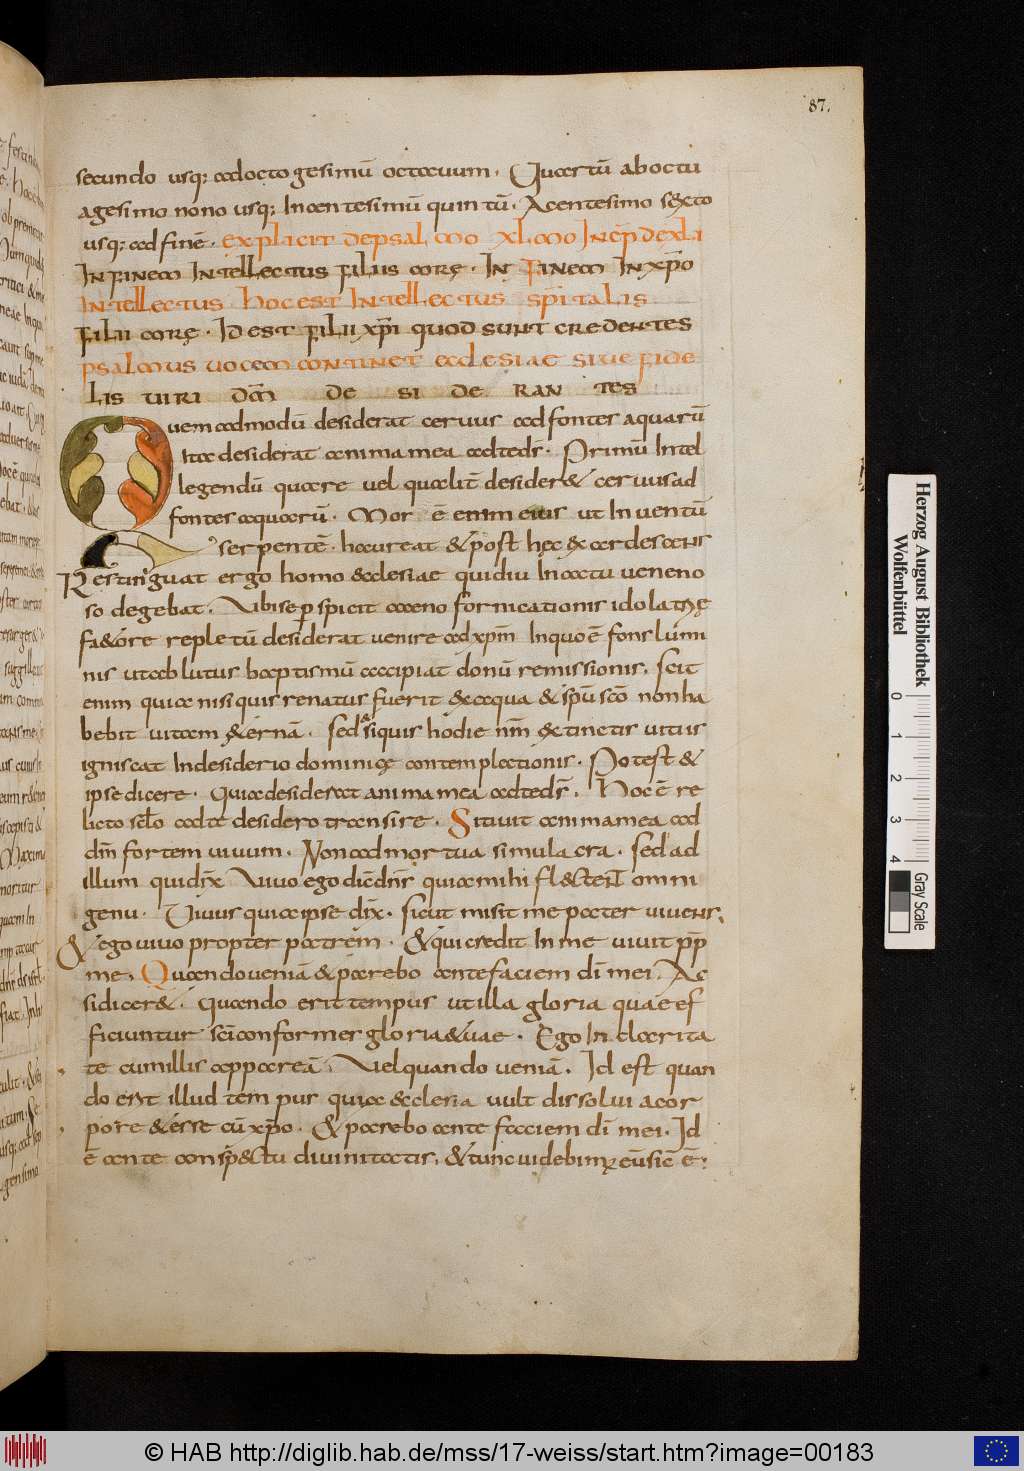 87.
secundo usq; ad octogesimū octauum. Quartū ab octu
agesimo nono usq; In centesimū quintū. A centesimo sexto
usq; ad finē. explicit de psalmo xlmo Incp̄ de xli
In finem Intellectus filiis corę. In finem In xp̄o
Intellectus hoc est Intellectus sp̄italis
filii corę. Id est filii xp̄i quod sunt credentes
psalmus uocem continet ecclesiae siue fide
lis uiri dm̄ de si de ran tes
Quem admodū desiderat ceruus ad fontes aquarū
Ita desiderat anima mea ad te ds̄. Primū Intel
legendū quare uel qualit̄ desider& ceruus ad
fontes aquarū. Mor ē enim eius ut Inuentū
serpentē. haureat & post hęc & ardescens
Restinguat ergo homo & ecclesiae qui diu In actu ueneno
so degebat. Ubi se p spicit a ceno fornicationis idolatrię
fa&ore repletū desiderat uenire ad xp̄m In quo ē fons lumi
nis ut ablutus baptismū accipiat donū remissionis. scit
enim quia nisi quis renatus fuerit ex aqua & sp̄u sc̄o non ha
bebit uitam &ernā. sed & si quis hodie nm̄ extinctis uitiis
igniscat In desiderio dominicę contemplationis. Potest &
ipse dicere. Quia desiderat anima mea ad te ds̄. Hoc ē re
licto scl̄o ad te desidero transire. Sitiuit anima mea ad
dm̄ fortem uiuum. Non ad mortua simulacra. sed ad
illum qui dix̄ Uiuo ego dic̄ dn̄s quia mihi fl&ct& om̄i
genu. Uiuus quia ipse dix̄. sicut misit me pater uiuens.
& ego uiuo propter patrem. & qui credit In me uiuit pp̄
me. Quando ueniā & parebo ante faciem dī mei. Ac
si dicer&. Quando erit tempus ut illa gloria quae ef
ficiuntur sc̄i conformes gloriae tuae. Ego In clarita
te cum illis appareā. Uel quando ueniā. Id est quan
do erit illud tempus quia &clesia uult dissolui a cor
pore & esse cū xp̄o. & parebo ante faciem dī mei. Id
ē ante conspectu diuinitatis. & tunc uidebimꝰ eū sic ē.
Herzog August Bibliothek
Wolfenbüttel
0 1 2 3 4
Gray Scale
© HAB http://diglib.hab.de/mss/17-weiss/start.htm?image=00183